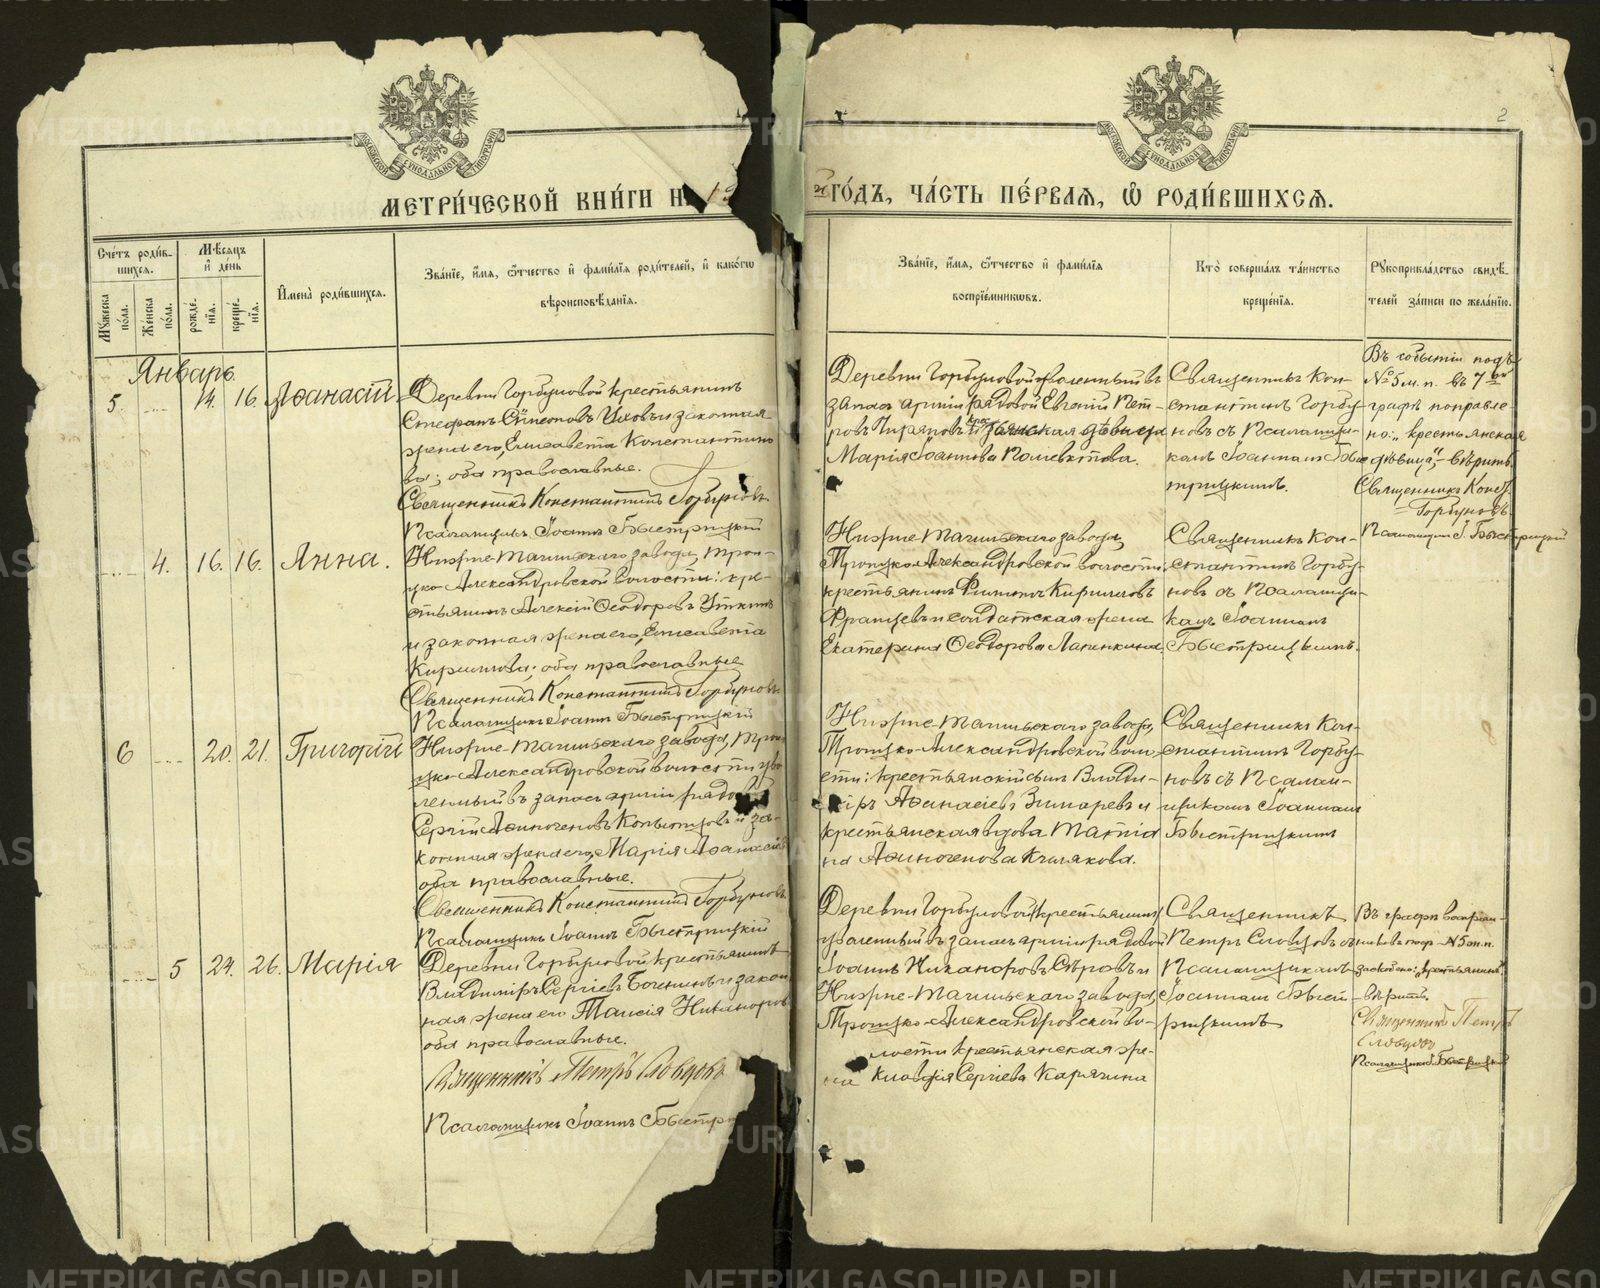 2
МОСКОВСКОЙ СѴНОДАЛЬНОЙ ТИПОГРАФІИ
МОСКОВСКОЙ СѴНОДАЛЬНОЙ ТИПОГРАФІИ
МЕТРИ́ЧЕСКОЙ КНИ́ГИ Н 19
ГО́ДЪ, ЧА́СТЬ ПЕ́РВАЯ, Ѡ҆ РОДИ́ВШИХСЯ.
Сче́тъ роди́в-
шихся.
Мꙋжеска по́ла.
Же́нска по́ла.
Мѣ́сяцъ
и҆ де́нь
рожде́нїя.
креще́нїя.
И҆мена̀ роди́вшихся.
Зва́нїе, и҆́мя, ѻ҆́тчество и҆ фами́лїя роди́телей, и҆ како́гѡ
вѣроисповѣ́данїя.
Зва́нїе, и҆́мя, ѻ҆́тчество и҆ фами́лїя
воспрїе́мникѡвъ.
Кто̀ соверша́лъ та́инство
креще́нїя.
Рꙋкоприкла́дство свидѣ́-
телей за́писи по жела́нїю.
Январь.
5. 14. 16. Аѳанасій
Деревни Горбуновой крестьянинъ
Стефанъ Сѵмеоновъ и законная
жена его, Елисавета Константино-
ва; оба православные.
Священникъ Константинъ Горбуновъ
Псаломщикъ Іоаннъ Быстрицкій
Деревни Горбуновой уволенный въ
запасъ арміи рядовой Евгеній Пет-
ровъ и крестьянская дѣвица
Марія Іоаннова Полевктова.
Священникъ Кон-
стантинъ Горбу-
новъ съ Псаломщи-
комъ Іоанномъ Бы-
стрицкимъ.
Въ событіи подъ
№ 5 м. п. въ 7 ой
графѣ поправле-
но: „крестьянская
дѣвица“, – вѣрить.
Священникъ Конст.
Горбуновъ.
Псаломщикъ І. Быстрицкій
4. 16. 16. Анна.
Нижне-Тагильскаго завода, Трои-
цко-Александровской волости: кре-
стьянинъ Алексій Ѳеодоровъ Уткинъ
и законная жена его, Елисавета
Кириллова; оба православные
Священникъ Константинъ Горбуновъ
Псаломщикъ Іоаннъ Быстрицкій
Нижне-Тагильскаго завода,
Троицко-Александровской волости
крестьянинъ Филиппъ Кирилловъ
и солдатская жена
Екатерина Ѳеодорова Лапенкина.
Священникъ Кон-
стантинъ Горбу-
новъ съ Псаломщи-
комъ Іоанномъ
Быстрицкимъ.
6 20. 21. Григорій
Нижне-Тагильскаго завода, Трои-
цко-Александровской волости уво-
ленный въ запасъ арміи рядовой
Сергій Аѳиногеновъ и за-
конная жена его, Марія Аѳанасіева
оба православные.
Священникъ Константинъ Горбуновъ
Псаломщикъ Іоаннъ Быстрицкій
Нижне-Тагильскаго завода,
Троицко-Александровской воло-
сти: крестьянскій сынъ Влади-
міръ Аѳанасіевъ Зимаревъ и
крестьянская вдова Татіа-
на Аѳиногенова Кичакова.
Священникъ Кон-
стантинъ Горбу-
новъ съ Псалом-
щикомъ Іоанномъ
Быстрицкимъ
5 24. 26. Марія
Деревни Горбуновой крестьянинъ
Владиміръ Сергіевъ и закон-
ная жена его Таисія Никанорова
оба православные.
Священникъ Петръ Словцовъ
Псаломщикъ Іоаннъ Быстри
Деревни Горбуновой крестьянинъ
уволенный въ запасъ арміи рядовой
Іоаннъ Никаноровъ Сѣровъ и
Нижне-Тагильскаго завода,
Троицко-Александровской во-
лости крестьянская же-
на Клавдія Сергіева Карягина
Священникъ
Петръ Словцовъ съ
Псаломщикомъ
Іоанномъ Быст-
рицкимъ
Въ графѣ воспріем-
никовъ № 5 ж. п.
„крестьянинъ“
– вѣрить.
Священникъ Петръ
Словцовъ
Псаломщикъ І. Быстрицкій
METRIKI.GASO-URAL.RU